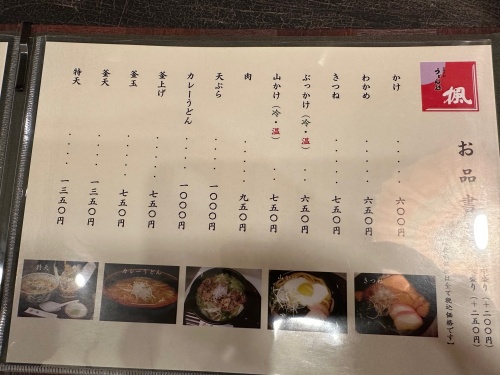 楓
お品書
かけ・・・・六〇〇円
わかめ・・・・六五〇円
きつね・・・・七五〇円
ぶっかけ(冷・温)・・・・六五〇円
山かけ(冷・温)・・・・七五〇円
肉・・・・九五〇円
天ぷら・・・・一〇〇〇円
カレーうどん・・・・一〇〇〇円
釜上げ・・・・七五〇円
釜玉・・・・七五〇円
釜天・・・・一三五〇円
特天・・・・一三五〇円
(十二〇〇円)
(十二五〇円)
全て税込価格です】
特天
カレーうどん
きつね